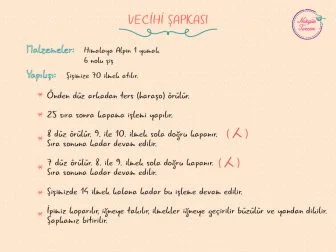 VECİHİ ŞAPKASI
Malzemeler: Himalaya Alpin 1 yumak
6 nolu şiş
Yapılışı: Şişimize 70 ilmek atılır.
* Önden düz arkadan ters (haraşo) örülür.
* 25 sıra sonra kapama işlemi yapılır.
* 8 düz örülür, 9. ile 10. ilmek sola doğru kapanır. (⅄)
Sıra sonuna kadar devam edilir.
* 7 düz örülür. 8. ile 9. ilmek sola doğru kapanır. (⅄)
Sıra sonuna kadar devam edilir.
* Şişimizde 14 ilmek kalana kadar bu işleme devam edilir.
* İpimiz koparılır, iğneye takılır, ilmekler iğneye geçirilir büzülür ve yandan dikilir.
Şapkamız bitirilir.